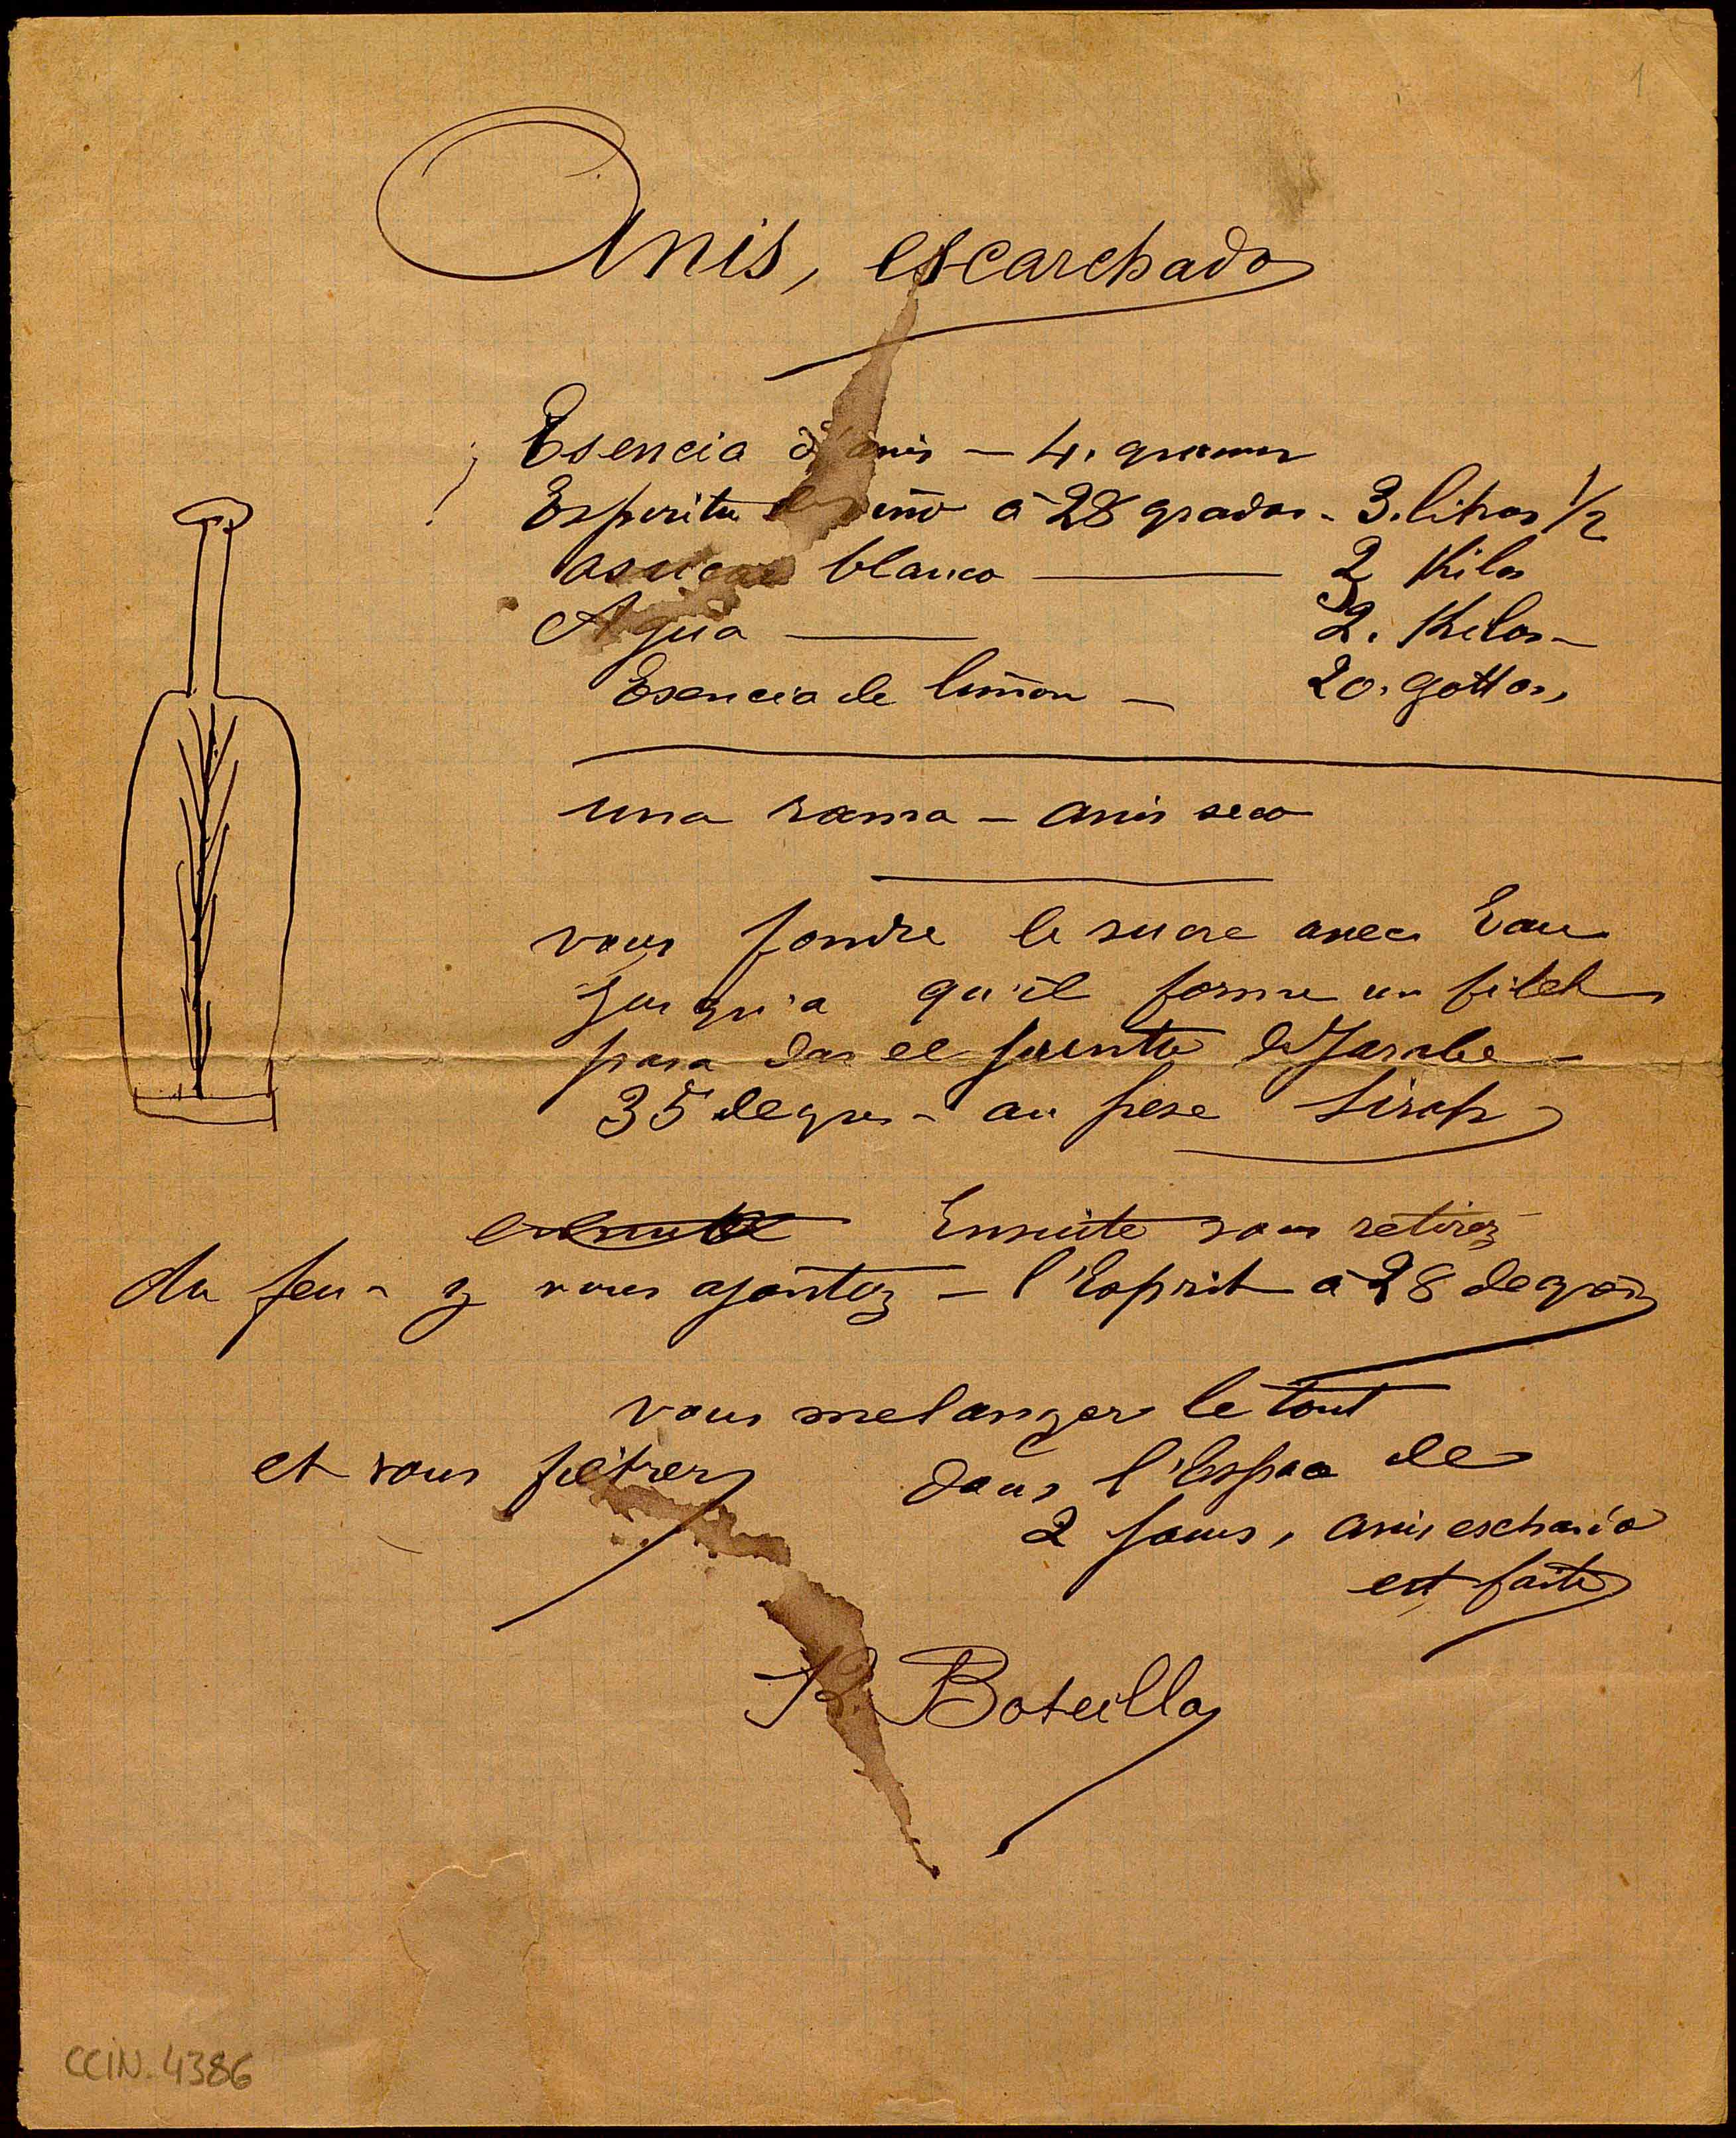 1
Anis, escarchado
Esencia d'anis - 4. grammes
Espiritu de viño á 28 grados - 3. litros 1/2
asucar blanco — 2 Kilos
Agua — 2. Kilos -
Esencia de limon — 20. gottas,
una rama - anis seco
vous fondre le sucre avec Eau
jusqu'a qu'il forme un filet
para dar el puntto de Jarabe -
35 degres - au pese sirop
Ensuite vous retirez
du feu - y vous ajoutez - l'Esprit a 28 degres
vous melanger le tout
et vous filtrer dans l'Espace de
2 jours, anis
est faite
Boteilla
CCIN. 4386